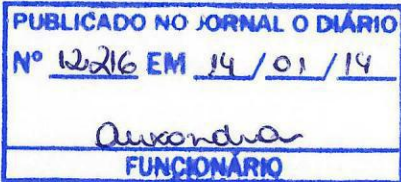 PUBLICADO NO JORNAL O DIÁRIO
Nº 12.216 EM 14 / 01 / 14
FUNCIONÁRIO